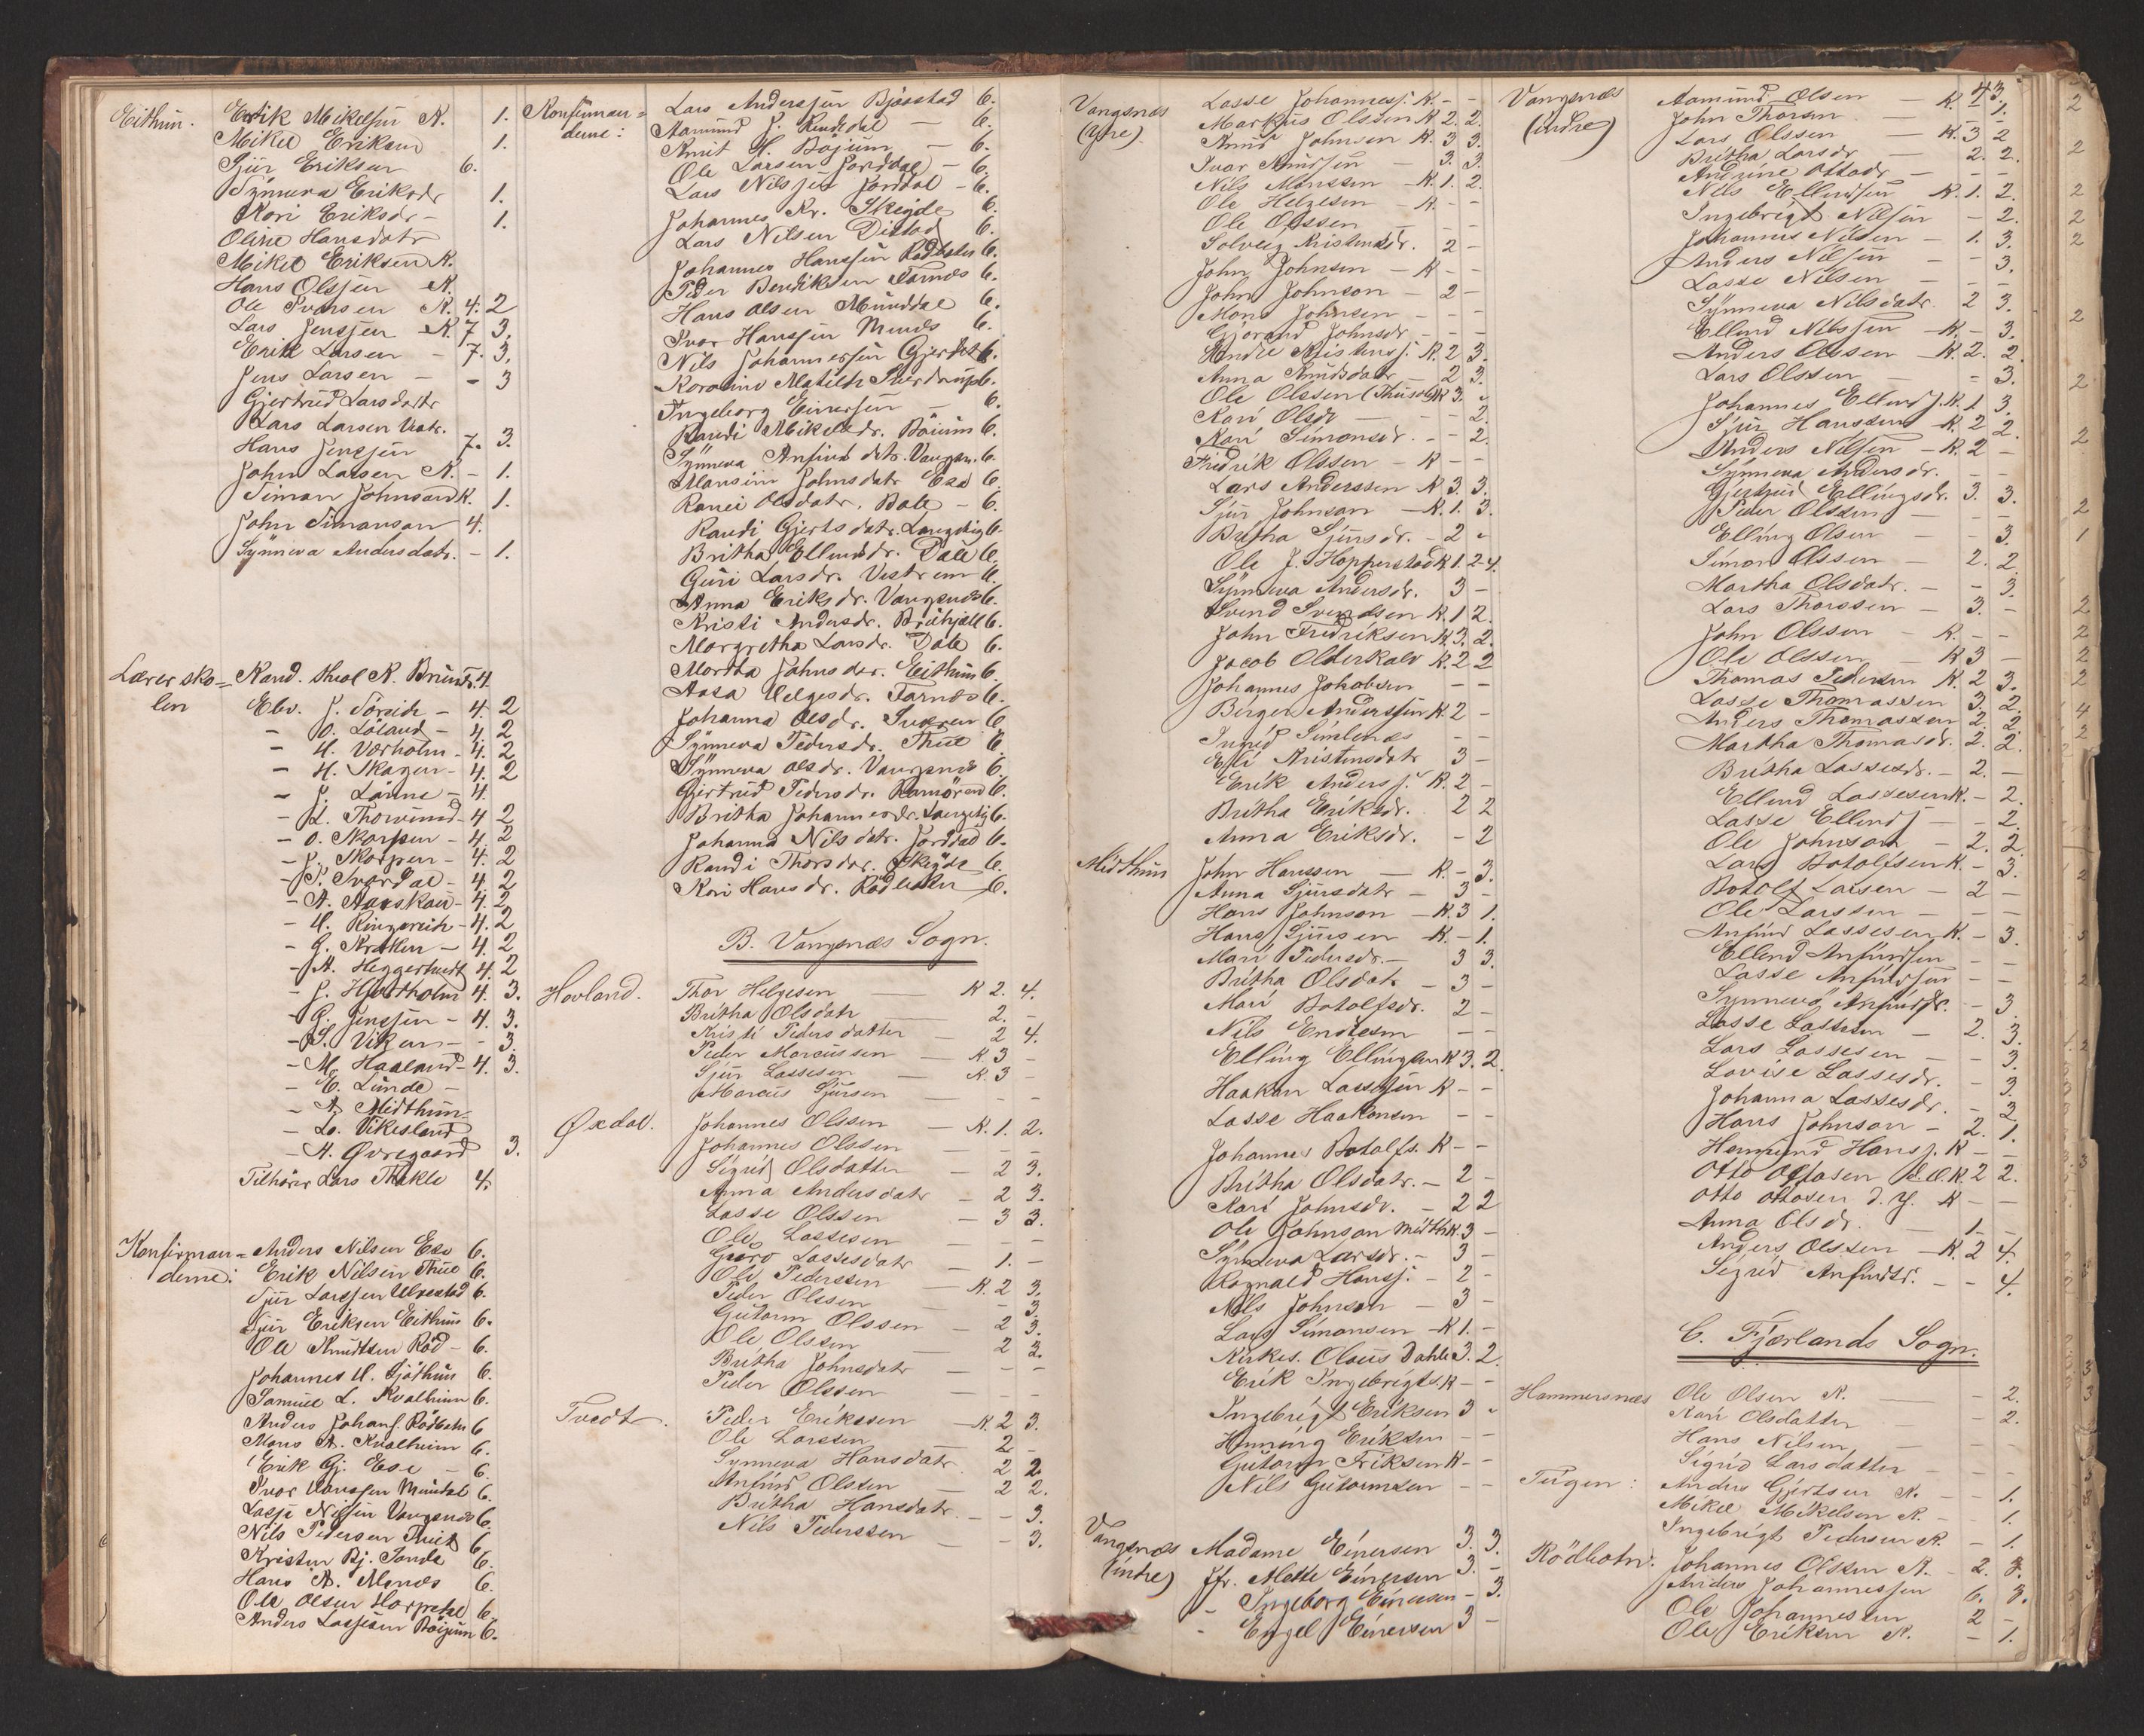 Eithun. Erik Mikelsen K. 1.
Mikel Eriksen 1.
Sjur Eriksen 6.
Synneva Eriksdr 1.
Kari Eriksdr - 1.
Oline Hansdatr
Mikel Eriksen K.
Hans Olsjen K.
Ole Ivarsen K. 4. 2
Lars Jensjen K. 7 3.
Erik Larsen - 7. 3.
Jens Larsen - - 3
Gjertrud Larsdatr
Lars Larsen
Hans Jensjen 7. 3.
John Larsen K. - 1.
Simon Johnson K. 1.
John Simonson 4.
Synneva Andersdatr. - 1.
Lærersko=
len
Kand. theol K. Bruun. 4.
Elev. J. - 4. 2
- O. Loland - 4. 2
- H. Varholm - 4. 2
- H. Skagen - 4. 2
- J. Lånne - 4.
- L. - 4 2
- O. Skorpen - 4. 2
- J. Skorpen - 4. 2
- P. Svardal - 4. 2
- A. Aarskau - 4. 2
- H. Ringereide - 4. 2
- G. - 4. 2
- A. Heggertveit 4. 2
- J. Hjortholm 4. 3.
- G. Jensjen - 4. 3.
- S. Viken - - 3.
- M. Haaland - 4. 3.
- E. Lunde -
- A. Midthun
- Lo. Vikesland
- A. Øvregaard 3.
Tilhører Lars Thekle 4.
Konfirman=
dene:
Anders Nilsen Ese 6.
Erik Nilsen Thue 6.
Sjur Larsjen Ulvestad 6.
Sjur Eriksen Eithun 6.
Ole Knudtsen Röd - 6.
Johannes H. Sjöthun 6.
Samuel L. Kvalheim 6.
Anders Johans. Rödbotn 6
Mons A. Kvalheim 6.
Erik Gj. Ese - 6.
Ivar Hansjen Mundal 6.
Lasse Nilsen Vangsnæs 6.
Nils Pedersen Tveit 6.
Kristen Bj. Tomle 6.
Hans A. Menes 6.
Ole Olsen Horpedal 6.
Anders Lassjesen Böijum 6.
Konfirman=
dene:
Lars Andersjen Bjåstad 6.
Aamund J. Rendedal - 6.
Arnt H. Bojum - 6.
Ole Larsen Jorddal - 6.
Lars Nilsjen Jorddal - 6.
Johannes Kr. Skeyde 6.
Lars Nilsen Distad 6.
Johannes Hansjen Rödbotn 6.
Peder Bendiksen Farnæs 6.
Hans Olsen Munddal 6.
Ivar Hansjen Menes 6.
Nils Johannesjen 6.
Karoline Matilde Sverdrup 6.
Ingeborg Einersen 6.
Randi Mikelsdr. Böium 6.
Synneva Anfinsdatr. Vangsn. 6.
Mansine Johnsdatr Ese 6.
Ranei Olsdatr. Bale - 6.
Randi Gjertsdatr. Langeteig 6.
Britha Ellendsdr. Dale 6.
Guri Larsdr. Vestrem 6.
Anna Eriksdr. Vangsnæs 6.
Kristi Andersdr. 6.
Margretha Larsdr. Dale 6.
Martha Johnsdr. Eeithun 6.
Aasa Helgesdr. Farnæs 6.
Johanna Olsdr. Suoren 6.
Synneva Pedersdr. Thue 6.
Synneva Olsdr. Vangsnæs 6.
Gjertrud Pedersdr. Ramören 6.
Britha Johannesdr. Langeteig 6.
Johanna Nilsdatr. Jorddal 6.
Randi Thorsdr. Skeyde 6.
Kari Hansdr. Rödbotn 6.
B. Vangsnæs Sogn.
Hovland. Thor Helgesen - K 2. 4.
Britha Olsdatr - 2. -
Kristi Pedersdatter - 2 4.
Peder Marcussen - K. 3 -
Sjur Lassesen - K. 3 -
Marcus Sjursen - - -
Øxdal. Johannes Olssen - K. 1. 2.
Johannes Olssen - - -
Sigrid Olsdatter - 2 3.
Anna Andersdatr - 2 3.
Lasse Olssen - 3 3.
Ole Lassesen - - -
Guro Lassesdatr - 1. -
Ole Pederssen - K. 2 3.
Peder Olssen - - 3.
Gutorm Olssen - 2 3.
Ole Olssen - 2 2.
Britha Johnsdatr - - -
Peder Olssen - -
Tvedt. Peder Erikssen - K. 2 3.
Ole Larssen 2 -
Synneva Hansdatr 2 2.
Anfind Olssen - 2 2.
Britha Hansdatr. - - 3.
Nils Pederssen - - 3.
Vangsnæs
(ytre)
Lasse Johannesj. K. - -
Markus Olssen K 2. 2.
Knud Johnsen K. 3 3.
Ivar Knudsen - 3. 3.
Nils Monssen - K. 1. 2.
Ole Helgesen - K. - -
Ole Olssen - -
Solveig Kristensdr. 2 -
John Johnsen - K - -
John Johnson - 2 -
Mons Johnsen - - -
Gjørand Johnsdr - - -
Endre Kristensj. K. 2 3.
Anna Knudsdatr - 2 3.
Ole Olssen K 3. -
Kari Olsdr - - 2.
Kari Simonsdr. - - 2.
Fredrik Olssen - K - -
Lars Anderssen K 3. 3.
Sjur Johnson - K. 1. 3.
Britha Sjursdr. - 2 -
Ole J. Hopperstad K 1. 2-4.
Synneva Andersdr. 3 -
Svend Svendsen K. 1 2.
John Fredriksen K 3. 2.
Jacob Olderkalv K. 2 2
Johannes Jakobsen - -
Berger Anderssen K. 2 -
Ingrid - -
Eli Kristensdatr 3 -
Erik Andersj. K. 2 -
Britha Eriksdr. 2 2
Anna Eriksdr. - 2
Midthun John Hanssen - K. - 3.
Anna Sjursdatr - 3 -
Hans Johnson - K. 3 1.
Hans Sjursen - K. - 1.
Mari Pedersdr. - 3 3.
Britha Olsdatr - 3 -
Mari Botolfsdr. 2 -
Nils Endresen - -
Elling Ellingsen K 3. 2.
Haakon Lassesjen K - -
Lasse Haakonsen - -
Johannes Botolfs. K - -
Britha Olsdatr. - 2 -
Kari Johnsdr. - 2 2
Ole Johnson Midth. K 3 -
Synneva Larsdr. - 3 -
Ragnald Hansj. - 2 -
Nils Johnson - 3 -
Lars Simonsen - K 1. -
Kirkes. Olaus Dahle 3. 2.
Erik Ingebrigts. K - -
Ingebrigt Eriksen 3 -
Henning Eriksen - -
Gutorm Eriksen K - -
Nils Gutormsen - -
Vangsnæs
(indre)
Madame Einersen 3. 3.
Jfr. Mette Einersen 3. -
- Ingeborg Einersen - 3.
- Engel Einersen 3 -
Vangsnæs
(indre)
Aamund Olsen - K. 4 3.
John Thorson - - 1.
Lars Olssen - K. 3 2
Britha Larsdr - 2. 2.
Andrine Ottosdr - - -
Nils Ellendsen - K. 1. 2.
Ingebrigt Nilsjen - 2.
Johannes Nilsen - 1. 3.
Anders Nilsjen - - 3.
Lasse Nilsen - -
Synneva Nilsdatr. 2 3.
Ellend Nilssjen - K. - 3.
Anders Olssen - K. 2. 2.
Lars Olssen - 3.
Johannes Ellendsj. K. 1 3.
Sjur Hanssen - K. 2 2.
Anders Nilsjen - K. 2 -
Synneva Andersdr. - -
Gjertrud Ellingsdr. 3. 3.
Peder Olssen - - -
Elling Olsen - - 3.
Simon Olssen - 2. 2.
Martha Olsdatr. - - 3.
Lars Thorssen - 3. -
John Olssen - K. - -
Ole Olssen - K 3 -
Thomas Pedersen K. 2 3.
Lasse Thomassen 3. 2.
Anders Thomassen 2. 2.
Martha Thomasdr. 2. 2.
Britha Lassesdr. - 2. -
Ellend Lassesen K. - 2.
Lasse Ellendsj - - 2.
Ole Johnson - 2. 2.
Lars Botolfsen K. - 3.
Botolf Larsen - 2 -
Ole Larssen - - -
Anfind Lassesen K. - 3.
Ellend Anfindsen - -
Lasse Anfindsjen - -
Synneva Anfindsdr. - 3.
Lasse Lassesen - 2. 3.
Lars Lassesen - - 3.
Lovise Lassesdr. - 3.
Johanna Lassesdr. - 2.
Hans Johnson - 2. 1.
Hermund Hansj. K - -
Otto Ottosen d. e. K. 2 2.
Otto Ottosen d. y. K - -
Anna Olsdr. - 1. -
Anders Olssen - K. 2 4.
Sigrid Anfindsd. - - 4.
C. Fjærlands Sogn.
Hammersnæs Ole Olsen K. - - 2.
Kari Olsdatter - - 2.
Hans Nilsen - - -
Sigrid Larsdatter - - -
Teigen: Anders Gjertsen K. - - 1.
Mikel Mikelsen K. - - 1.
Ingebrigt Pedersen K. - 1.
Rödbotn. Johannes Olssen K. - 2. 3.
Anders Johannesjen 6. 3.
Ole Johannessen 2 -
Ole Eriksen K. - 1.